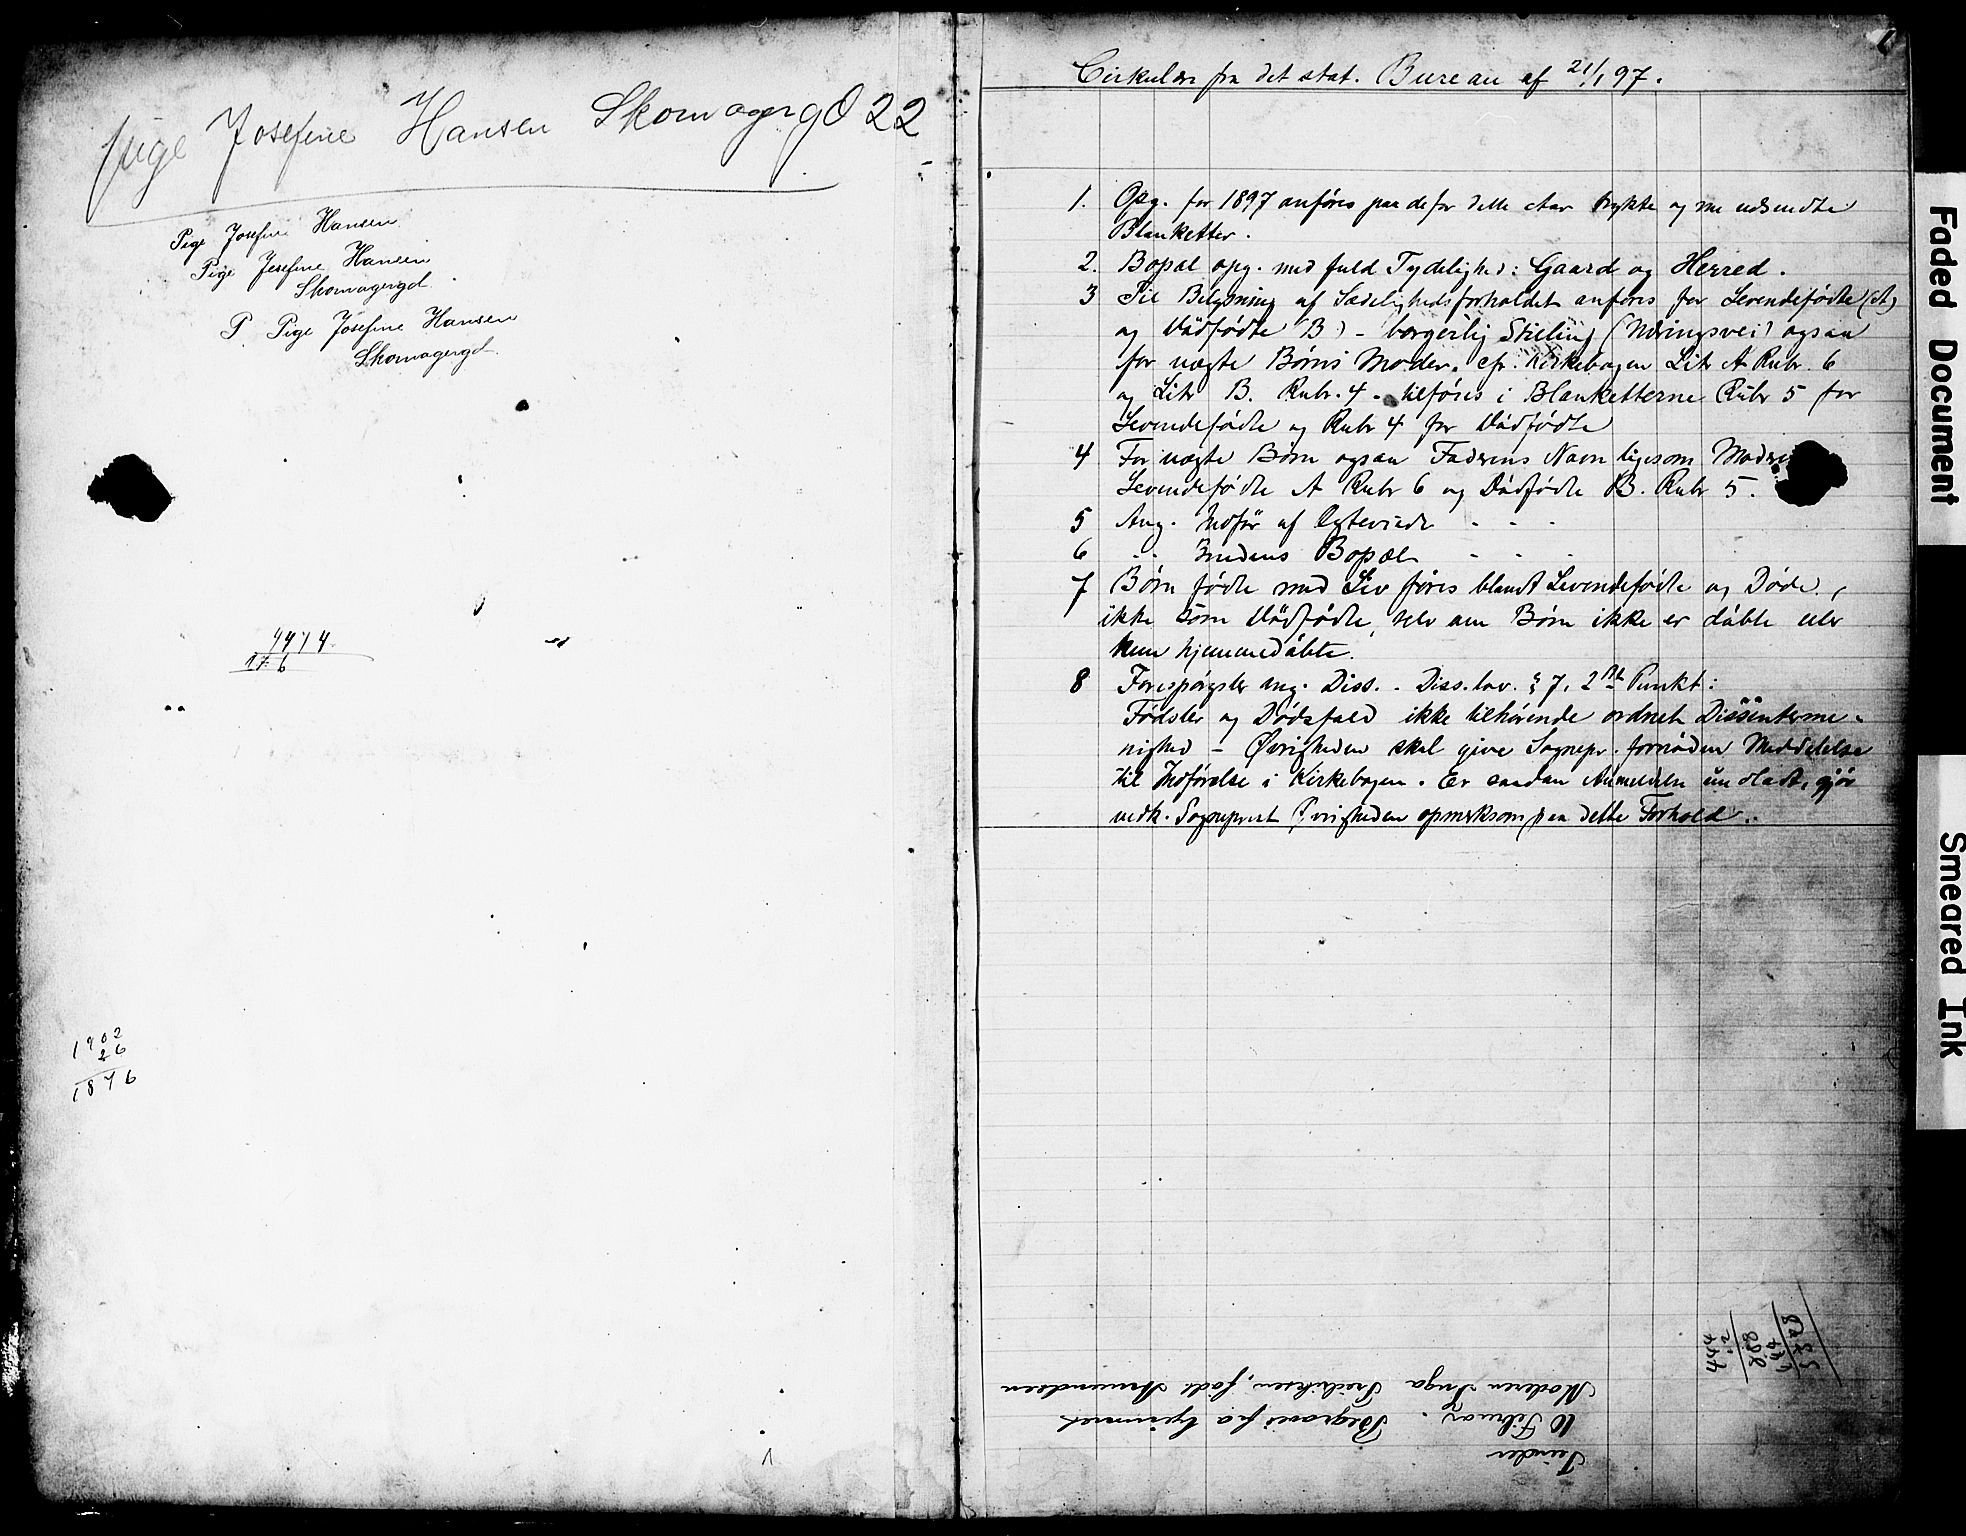 Pige Josefine Hansen Skomagergd 22
Pige Josefine Hansen
Pige Josefine Hansen
Skomagergd
P. Pige Josefine Hansen
Skomagergd.
1902
26
1876
1
Cirkulære fra det stat. Bureau af 21/1 97.
1. Opg. for 1897 anføres paa de for dette Aar trykte og nu udsendte
Blanketter.
2. Bopæl opg. med fuld Tydelighed: Gaard og Herred.
3 Til Belysning af Sædelighedsforholdet anføres for Levendefødte (A)
og Dødfødte (B) - borgerlig Stilling (Næringsvei) ogsaa
for uægte Børns Moder. cfr. Kirkebogen Litr A Rubr. 6
og Litr B. Rubr. 4 - tilføres i Blanketterne Rubr 5 for
Levendefødte og Rubr 4 for Dødfødte
4 For uægte Børn ogsaa Faderens Navn ligesom Moderens
Levendefødte A Rubr 6 og Dødfødte B. Rubr 5.
5 Ang. Indfør af Egteviede - - -
6 - Brudens Bopæl - - -
7 Børn fødte med Liv føres blandt Levendefødte og Døde,
ikke som Dødfødte, selv om Børn ikke er døbte eller
kun hjemmedøbte.
8 Forespørgsler ang. Diss. - Diss.lov. § 7, 2det Punkt:
Fødsler og Dødsfald ikke tilhørende ordnet Dissenterme-
nighed - Øvrigheden skal give Sognepr. fornøden Meddelelse
til Indførelse i Kirkebogen. Er saadan Anmeldelse undladt, gjør
vedk. Sogneprest Øvrigheden opmerksom paa dette Forhold.
Tvinder
10 Februar. Begraves fra hjemmet
Moderen Inga Fredriksen, født Amundsen
Faded Document
Smeared Ink